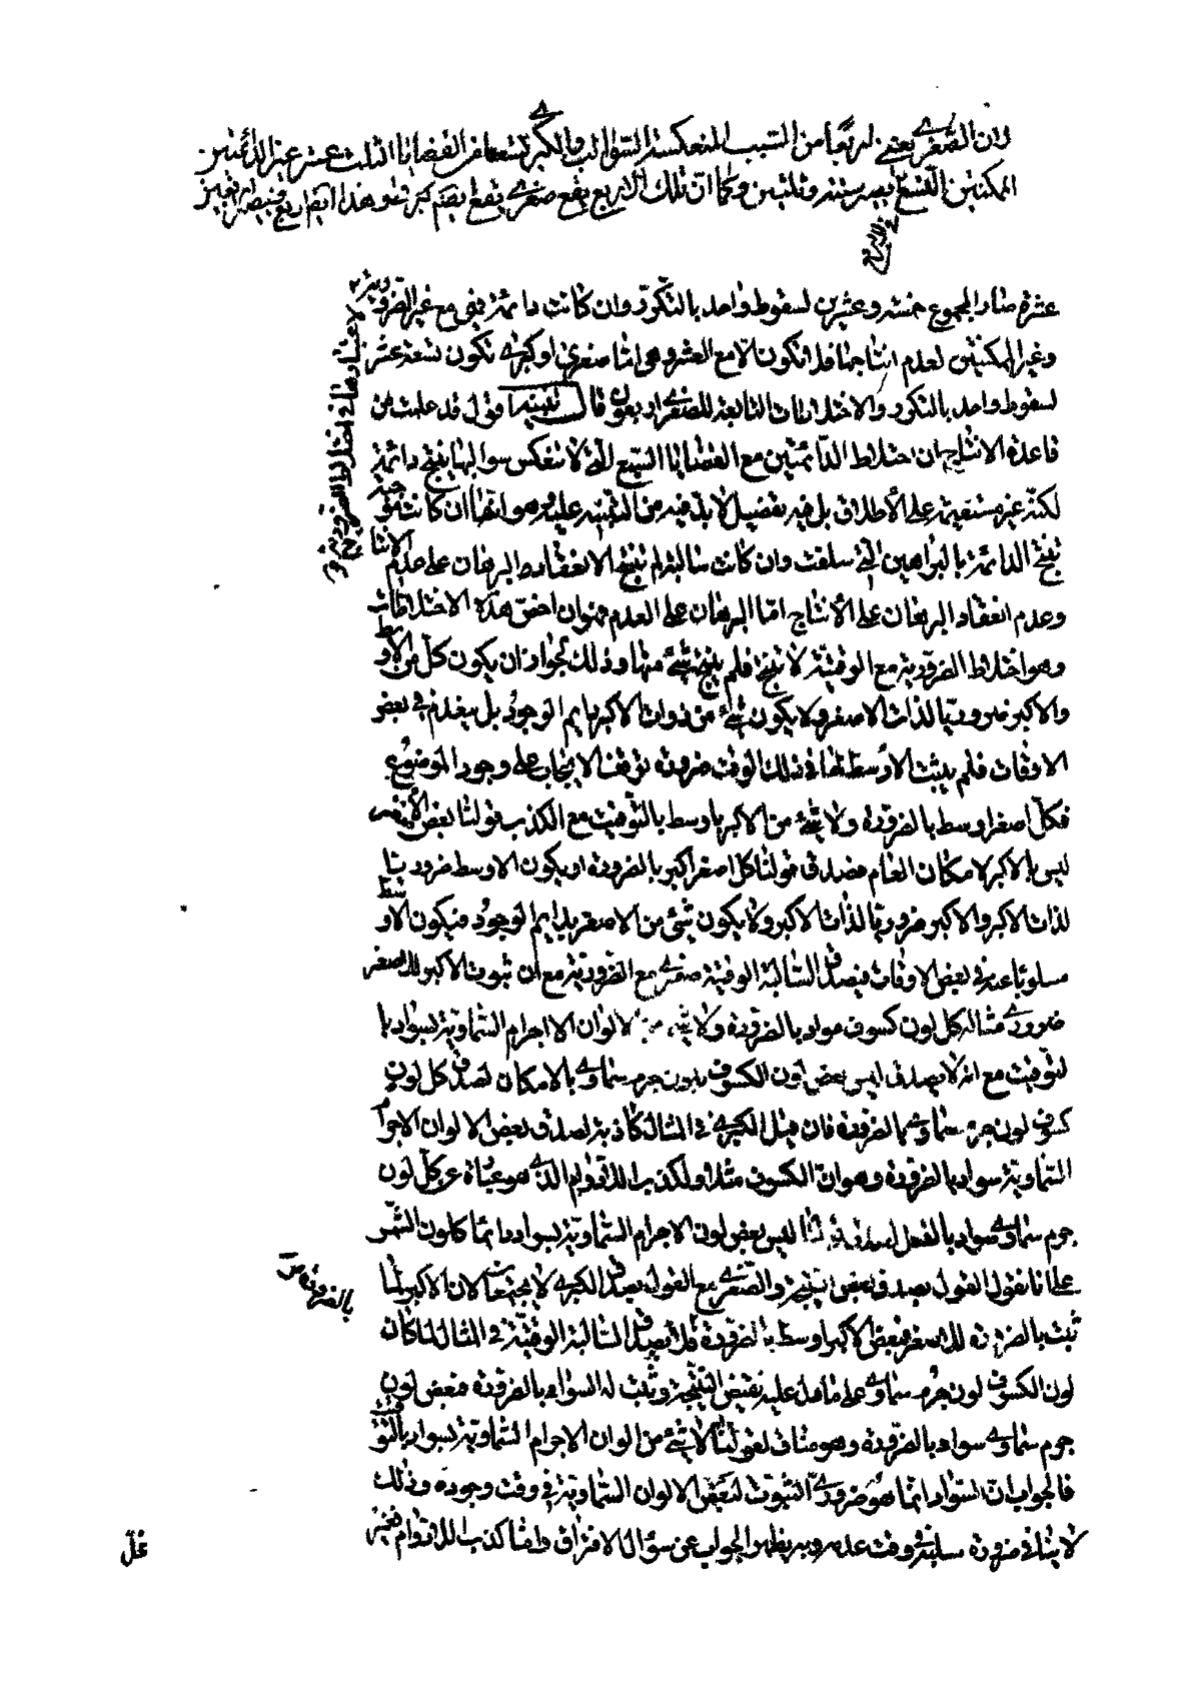 لان الصغرى يعني اربعا من السبب المنعكسة السوالب والكبرى تسعا من القضايا الثلث عشر غير الدائمتين
الممكنتين التسع يصير ستة وثلثين وكما ان تلك الاربع يقع صغرى يقع كبرى وهذا ايضا اربع فيصير اربعين
في الاربع
عشرة صار المجموع خمسة وعشرين لسقوط واحد بالتكرر وان كانت دائمة فهي مع غير الضرورية
وغير الممكنتين لعدم انتاجها فلا تكون الا مع العشر وهي اما صغرى او كبرى تكون تسعة عشر
لسقوط واحد بالتكرر والاختلاطات التابعة للصغرى اربعون قال تنبيه اقول قد علمت من
قاعدة الانتاج ان اختلاط الدائمتين مع القضايا السبع التي لا تنعكس سوالبها ينتج دائمة
لكنه غير مستقيم على الاطلاق بل فيه تفصيل لابد فيه من التنبيه عليه وهو انها ان كانت موجبة
تنتج الدائمة بالبراهين التي سلفت وان كانت سالبة لم تنتج لانعقاد البرهان على عدم الانتاج
وعدم انعقاد البرهان على الانتاج اما البرهان على العدم فهو ان اخص هذه الاختلاطات
وهو اختلاط الضرورية مع الوقتية لا ينتج فلم ينتج شئ منها وذلك لجواز ان يكون كل من الاوسط
والاكبر ضروريا لذات الاصغر ولا يكون شئ من ذوات الاكبر دايم الوجود بل ينعدم في بعض
الاوقات فلم يثبت الاوسط لها في ذلك الوقت ضرورة توقف الايجاب على وجود الموضوع
فكل اصغر اوسط بالضرورة ولا شئ من الاكبر باوسط بالتوقيت مع الكذب قولنا بعض الاصغر
ليس بالاكبر بالامكان العام لصدق قولنا كل اصغر اكبر بالضرورة او يكون الاوسط ضروريا
لذات الاكبر والاكبر ضروريا لذات الاكبر ولا يكون شئ من الاصغر بدايم الوجود فيكون الاوسط
مسلوبا عنه في بعض الاوقات فيصدق السالبة الوقتية صغرى مع الضرورية مع ان ثبوت الاكبر للاصغر
ضروري مثاله كل لون كسوف سواد بالضرورة ولا شئ من الالوان الاجرام السماوية بسواد با
لتوقيت مع انه لا يصدق ليس بعض لون الكسوف بلون جرم سماوي بالامكان لصدق كل لون
كسوف لون جرم سماوي بالضرورة فان قيل الكبرى في المثال كاذبة لصدق بعض الالوان الاجرام
السماوية سواد بالضرورة وهو ان الكسوف مثلا ولكذب اللادوام الذي هو عبارة عن كل لون
جرم سماوي سواد بالفعل لصدق قولنا ليس بعض لون الاجرام السماوية بسواد دائما كلون الشمس
على انا نقول القول بصدق نقيض النتيجة والصغرى مع القول بصدق الكبرى لا يجتمعان لان الاكبر لما
بالضرورة ص
ثبت بالضرورة للاصغر فبعض الاكبر اوسط بالضرورة فلا تصدق السالبة الوقتية في المثال لما كان
لون الكسوف لون جرم سماوي على ما دل عليه نقيض النتيجة وثبت له السواد بالضرورة فبعض لون
جرم سماوي سواد بالضرورة وهو مناف لقولنا لا شئ من الوان الاجرام السماوية بسواد بالتوقيت
فالجواب ان السواد انما هو ضروري الثبوت لبعض الالوان السماوية في وقت وجوده وذلك
لا ينافي ضرورة سلبه في وقت عدمه وبه يظهر الجواب عن سؤال الافتراق واما كذب اللادوام فغير